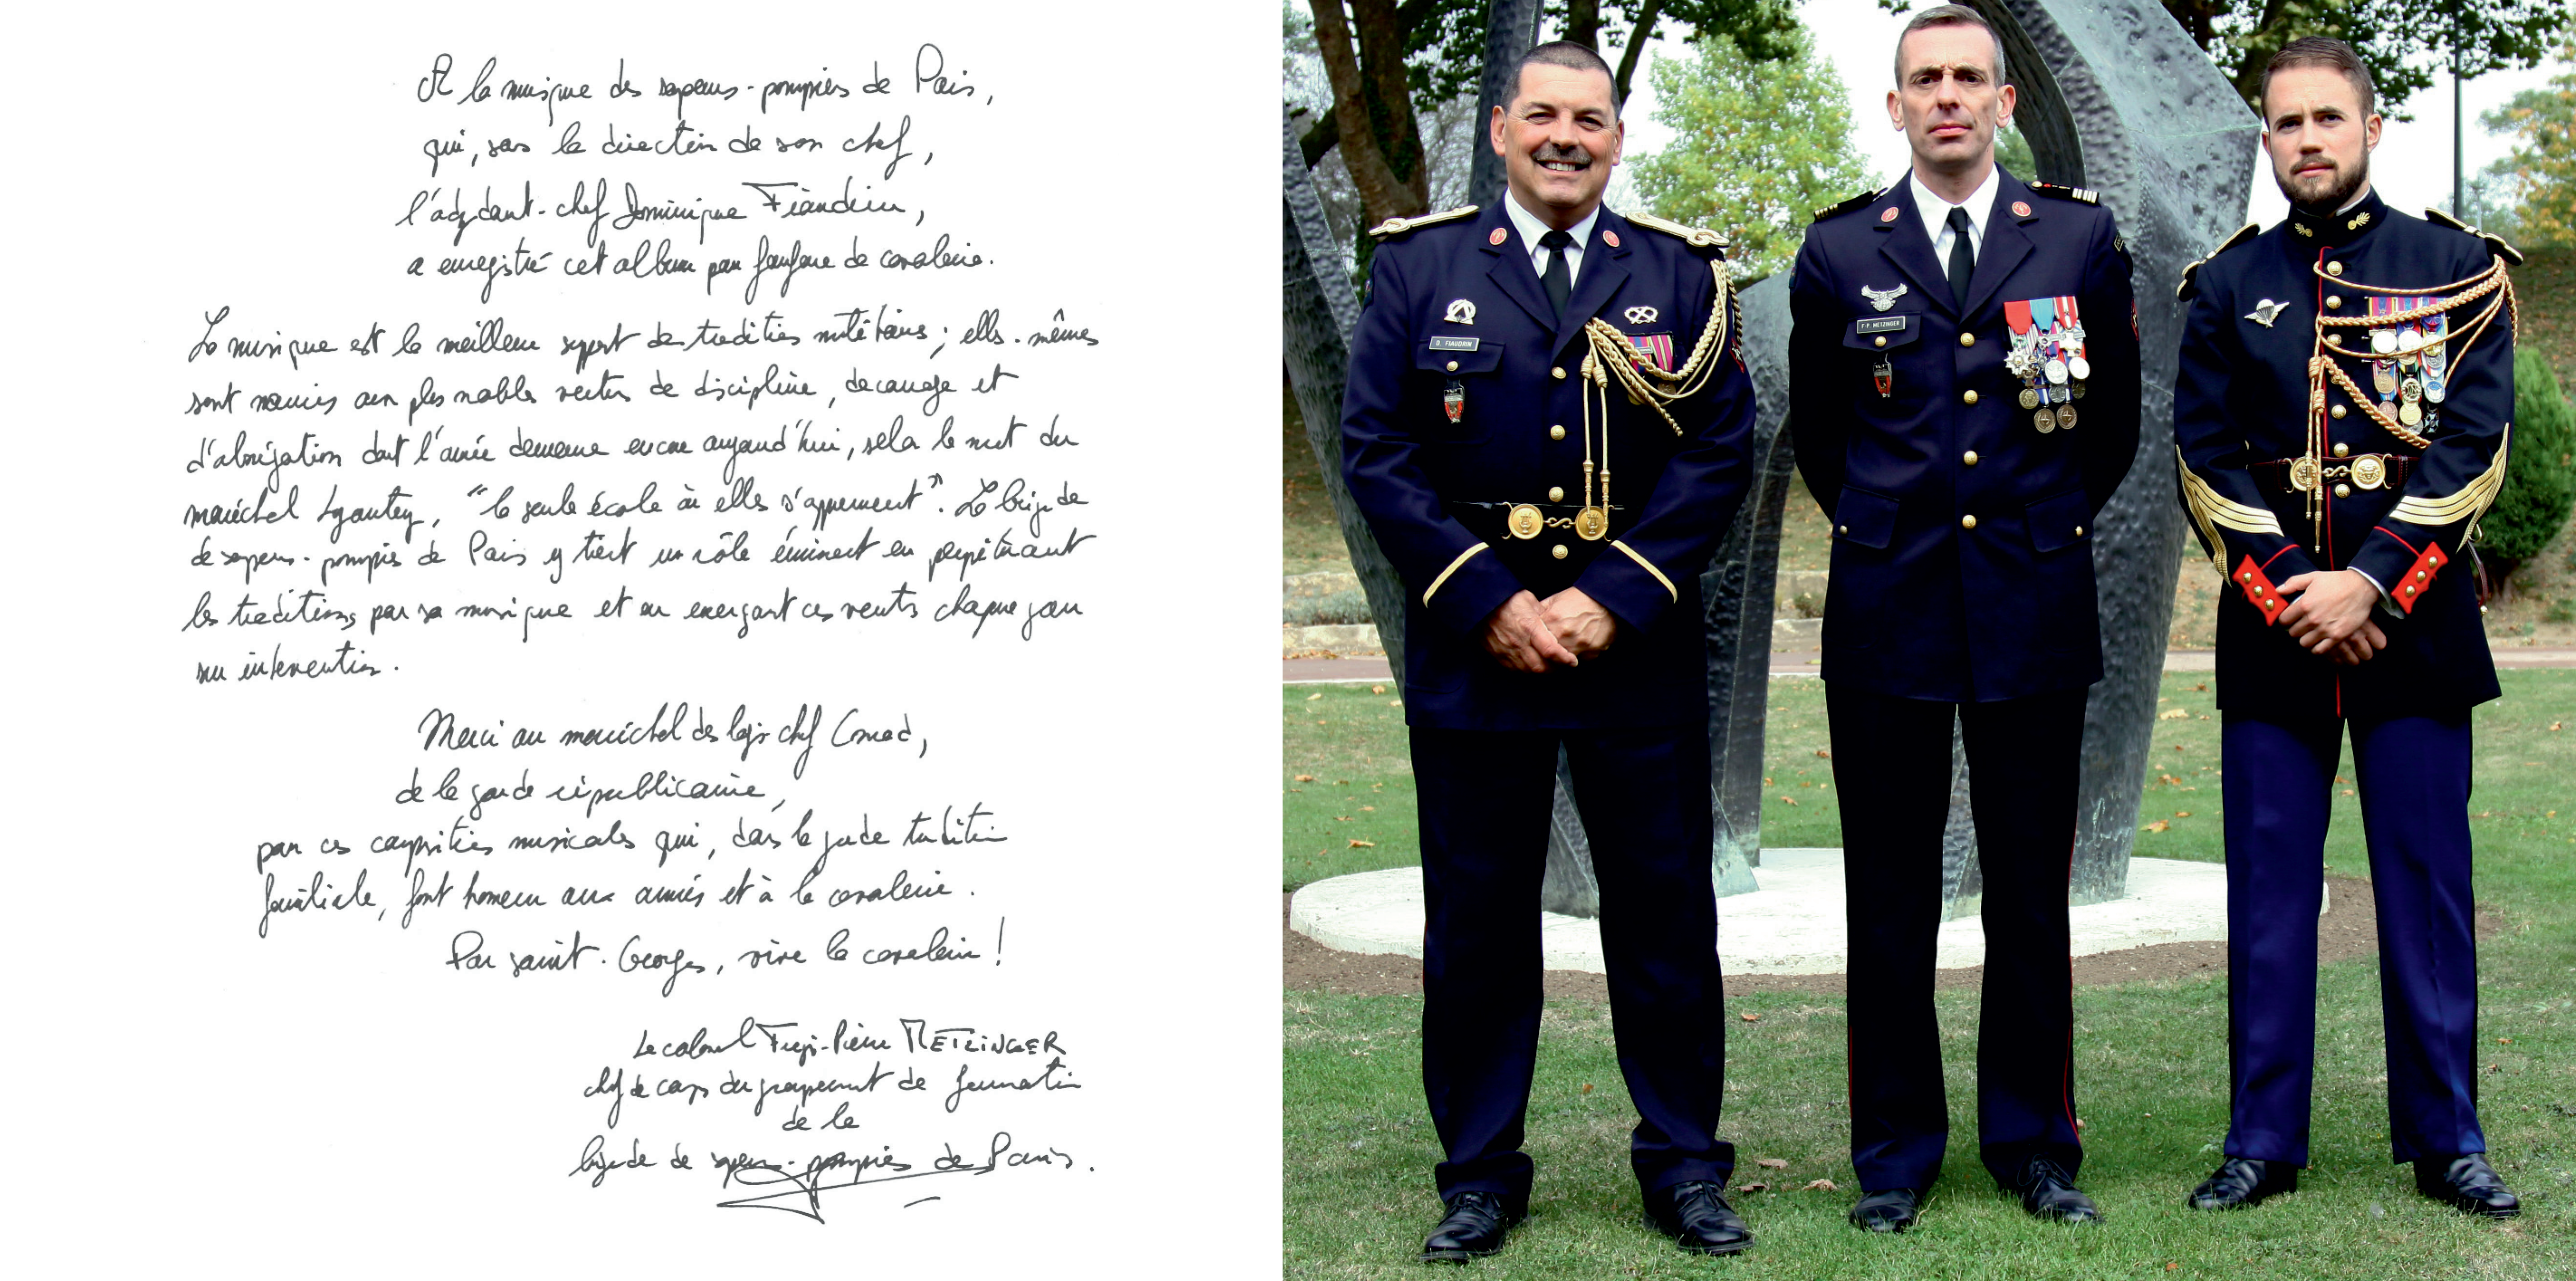 A la musique des sapeurs-pompiers de Paris,
qui, sous la direction de son chef,
l'adjudant-chef Dominique Fiaudrin,
a enregistré cet album pour fanfare de cavalerie.
La musique est le meilleur support des traditions militaires ; elles-mêmes
sont nourries aux plus nobles vertus de discipline, de courage et
d'abnégation dont l'armée demeure encore aujourd'hui, selon le mot du
maréchal Lyautey, "la seule école où elles s'apprennent". La brigade
de sapeurs-pompiers de Paris y tient un rôle éminent en perpétuant
les traditions par sa musique et en exerçant ces vertus chaque jour
sur intervention.
Merci au maréchal des logis chef Conrad,
de la garde républicaine,
pour ces compositions musicales qui, dans la grande tradition
familiale, font honneur aux armées et à la cavalerie.
Par saint-Georges, vive la cavalerie !
Le colonel -Pierre METZINGER
chef de corps du groupement de formation
de la
brigade de sapeurs-pompiers de Paris.
D. FIAUDRIN
F-P. METZINGER